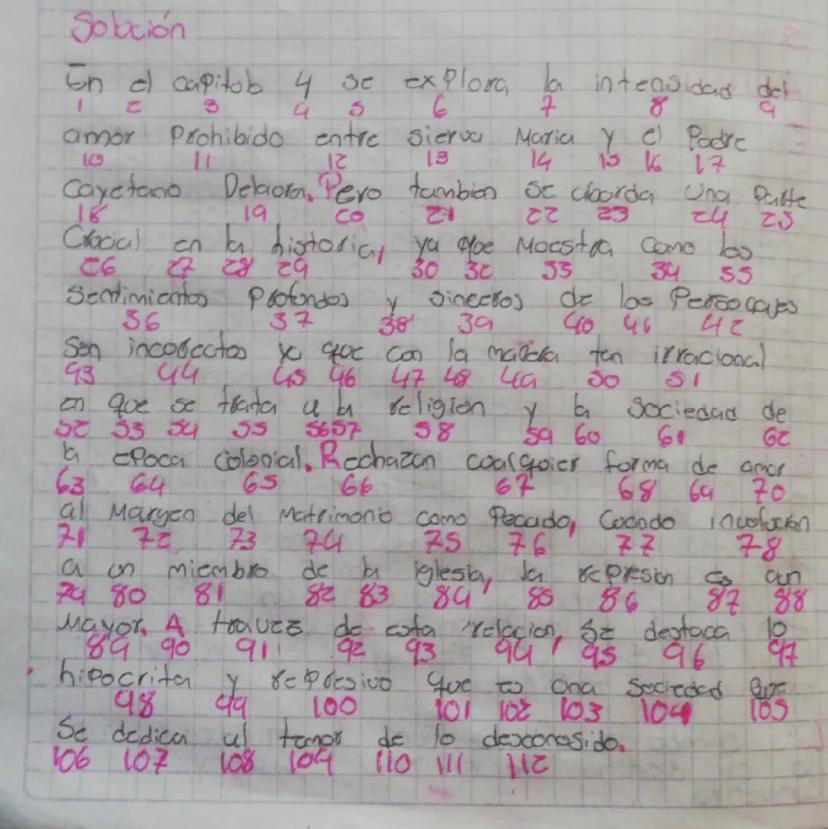 Solución
En el capitulo 4 se explora la intensidad del
1 2 3 4 5 6 7 8 9
amor Prohibido entre sierva Maria y el Padre
10 11 12 13 14 15 16 17
Cayetano Delaora, Pero tambien se aborda una Parte
18 19 20 21 22 23 24 25
Crucial en la historia, ya que Muestra como los
26 27 28 29 30 32 33 34 35
Sentimientos Profundos y sinceros de los Personajes
36 37 38 39 40 41 42
Son incorrectos ya que con la manera tan irracional
43 44 45 46 47 48 49 50 51
en que se trata a la religion y la sociedad de
52 53 54 55 56 57 58 59 60 61 62
la epoca colonial. Rechazan cualquier forma de amor
63 64 65 66 67 68 69 70
al Margen del Matrimonio como Pecado, Cuando involucran
71 72 73 74 75 76 77 78
a un miembro de la iglesia, la represion es aun
79 80 81 82 83 84 85 86 87 88
Mayor. A travez de esta relacion, se destaca lo
89 90 91 92 93 94 95 96 97
hipocrita y represivo que es una sociedad que
98 99 100 101 102 103 104 105
Se dedica al temor de lo desconosido.
106 107 108 109 110 111 112